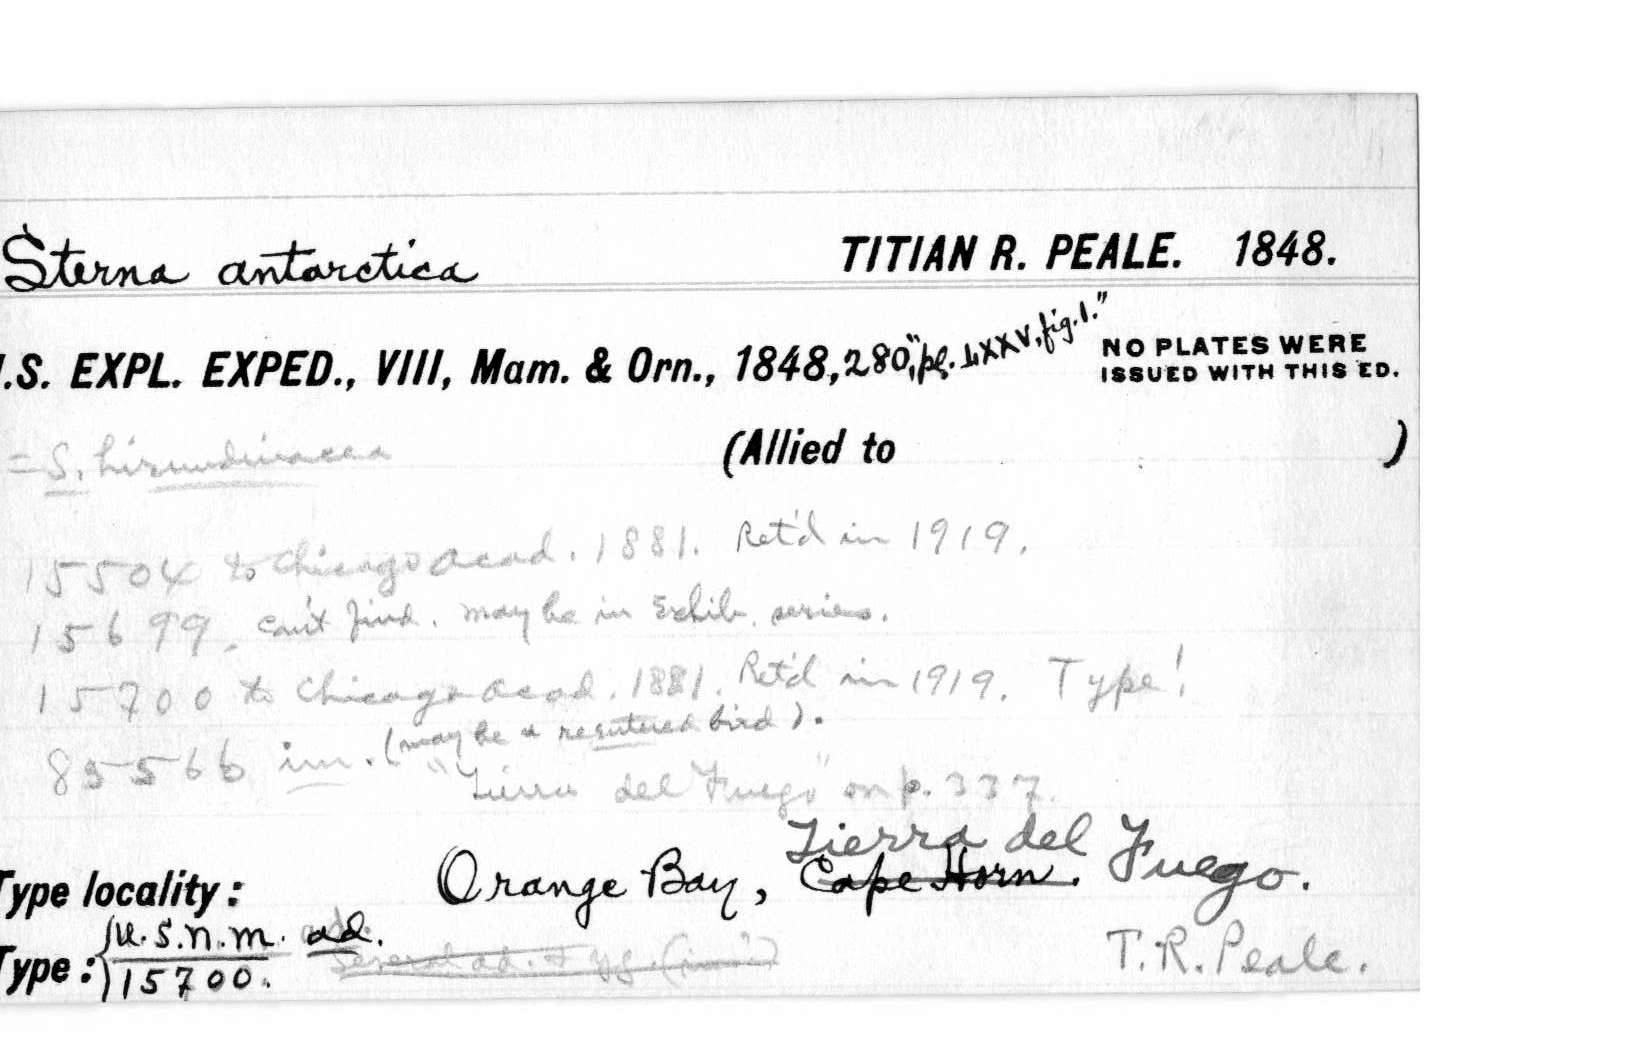 Sterna antarctica TITIAN R. PEALE. 1848.
.S. EXPL. EXPED., VIII, Mam. & Orn., 1848, 280, "pl. LXXV, fig. 1." NO PLATES WERE
ISSUED WITH THIS ED.
= S. hirundinacea (Allied to )
15504 to Chicago Acad. 1881. Ret'd in 1919.
15699, can't find. may be in Exhib. series.
15700 to Chicago Acad. 1881. Ret'd in 1919. Type!
85566 im. (may be a bird).
"Tierra del Fuego" on p. 337.
Tierra del Fuego.
Type locality: Orange Bay, Cape Horn.
Type: U.S.N.M. ad.
15700. Several ad. + yg. T. R. Peale.